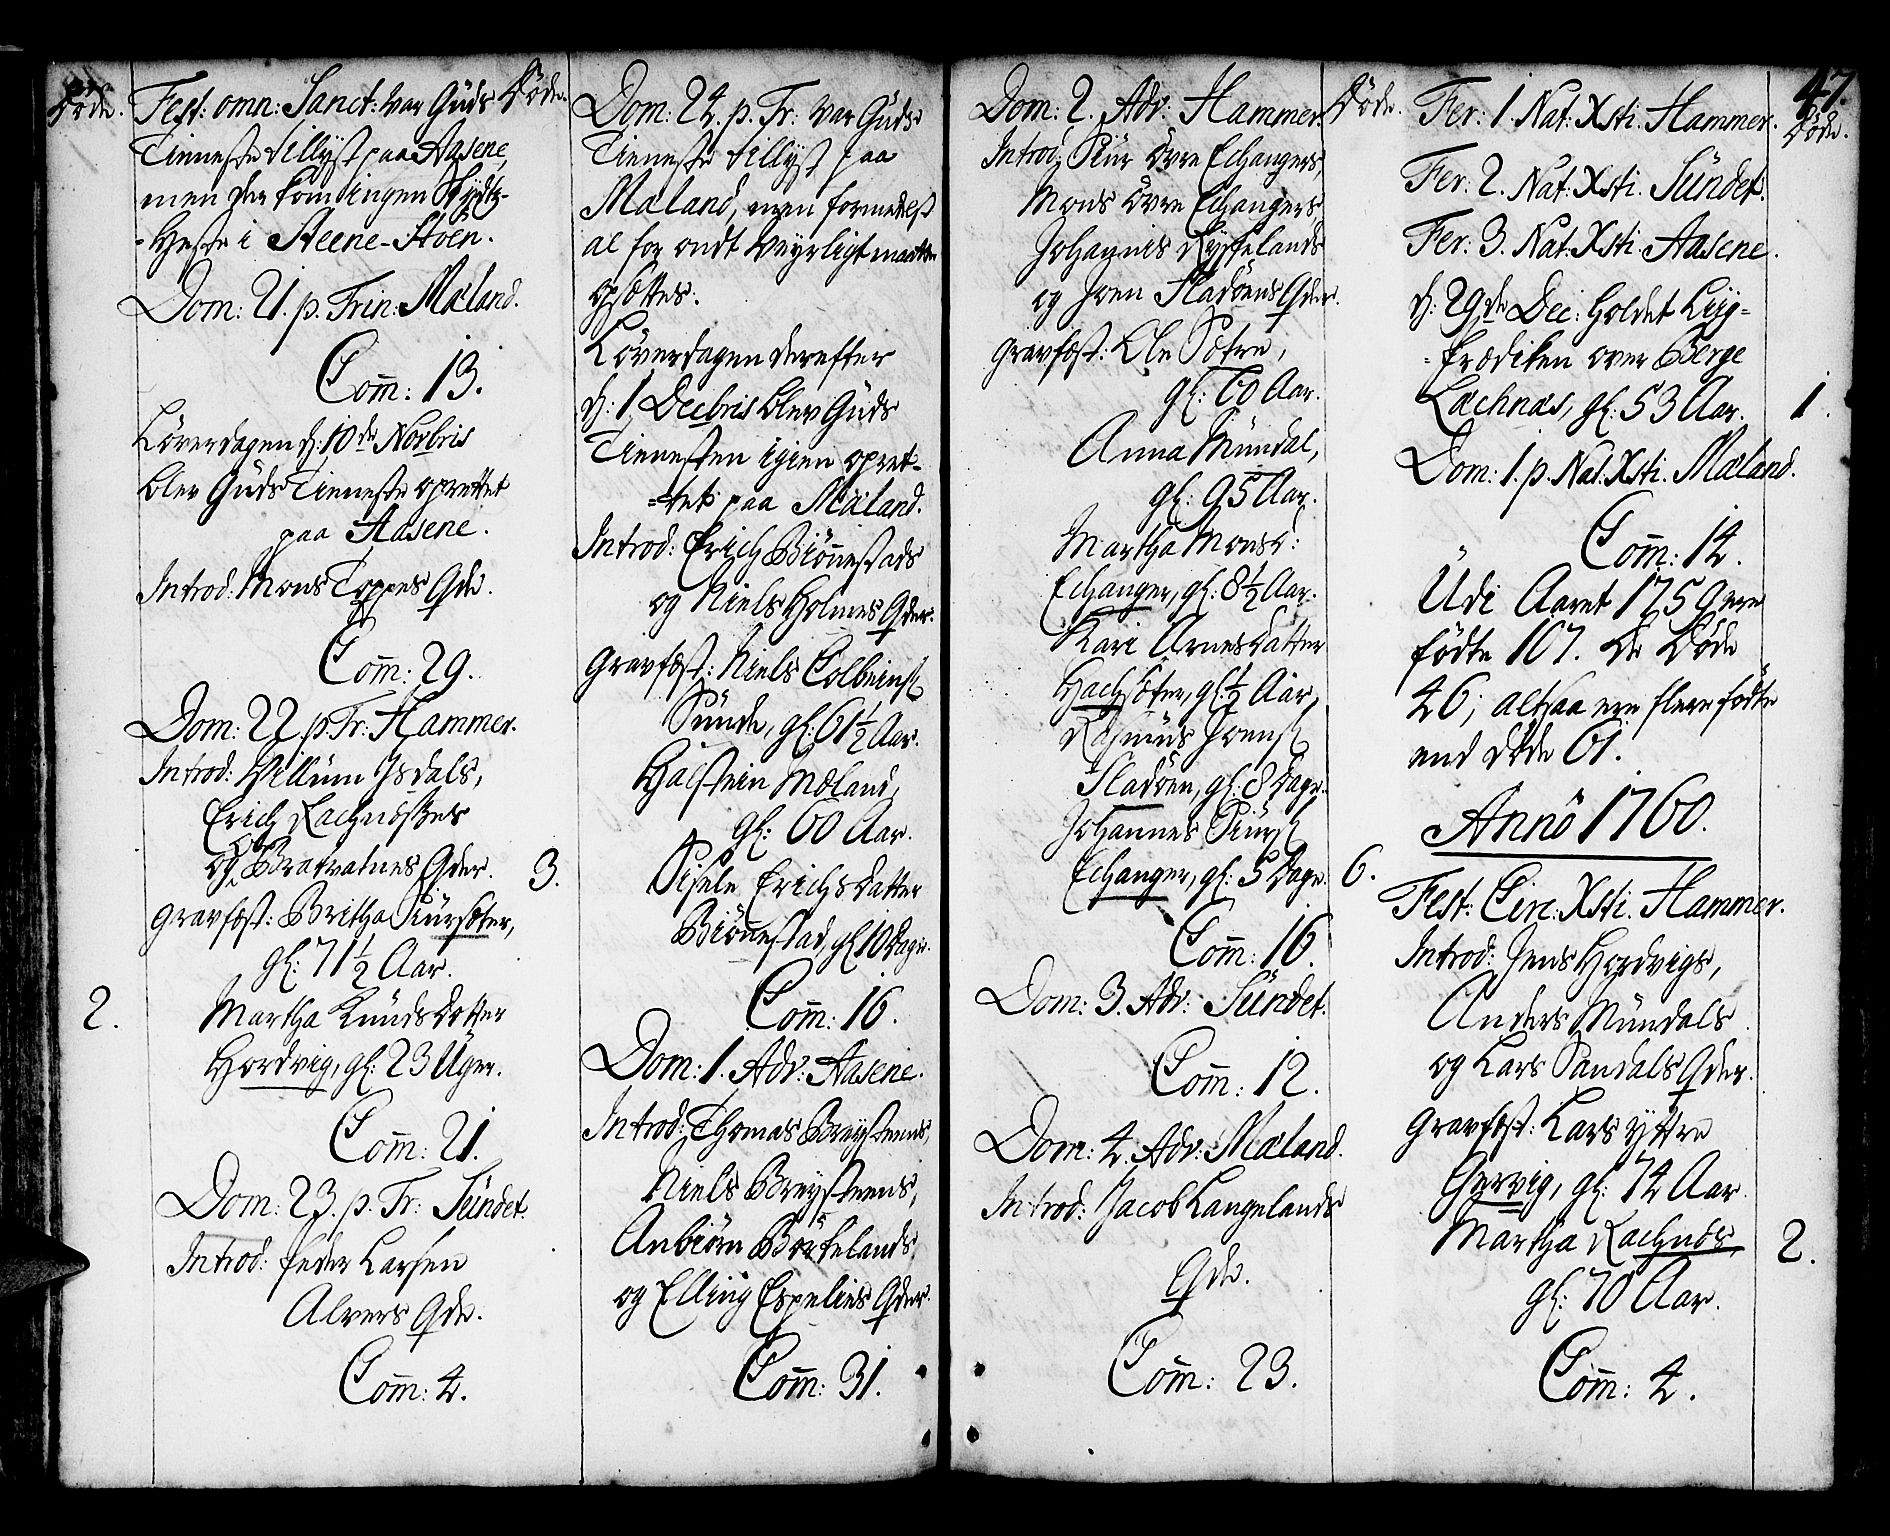 Døde.
Fest: omn: Sanct: var Guds
Tienneste tillyst paa Aasene,
men der kom ingen Skydtz-
-Heste i Steene-Støen.
Dom: 21. p. Trin: Mæland.
Com̄: 13.
Løverdagen d: 10de Novbris
blev Guds Tienneste oprettet
paa Aasene.
Introd: Mons Toppes Qde.
Com̄: 29.
Dom: 22. p. Tr: Hammer.
Introd: Villum Isdals,
Erich Rachnøs
og Bratvatnes Qder.
Gravfæst: Britha Siursæter,
gl: 71½ Aar.
2.
Martha Knuds Dotter
Hordvig, gl: 23 Uger.
Com̄: 21.
Dom: 23. p. Tr: Sundet.
Introd: Peder Larsen
Alvers Qde.
Com̄: 4.
Døde.
3.
Dom: 24. p. Tr: var Guds
Tienneste tillyst paa
Mæland, men formedelst
al for ondt Veyrligt maatte
opsættes.
Løverdagen derefter
d: 1 Decbris blev Guds
Tiennesten igien opret-
-tet paa Mæland.
Introd: Erich Biønnestads
og Niels Holmes Qder.
Gravfæst: Niels Colbeins
Sunde, gl: 61½ Aar.
Halstein Mæland,
gl: 60 Aar.
Sisele Erichsdatter
Biønnestad, gl: 10 Dage.
Com̄: 16.
Dom: 1. Adv: Aasene.
Introd: Thomas Breysteens,
Niels Breysteens,
Anbiørn Børkelands,
og Elling Espelies Qder.
Com̄: 31.
Dom: 2. Adv: Hammer.
Introd: Siur Øvre Echangers,
Mons Øvre Echangers,
Johannis Røsselands
og Joen Fladøens Qder.
Gravfæst: Ole Sætre,
gl: 60 Aar.
Anna Mundal,
gl: 95 Aar.
Martha Monsd:
Echanger, gl: 8½ Aar.
Kari Arnesdatter
Hachsæter, gl: ½ Aar,
Rasmus Joens
Fladøen, gl: 8 Dage.
Johannes Siurs
Echanger, gl: 5 Dage.
Com̄: 16.
Dom: 3. Adv: Sundet.
Com̄: 12.
Dom: 4. Adv: Mæland.
Introd: Jacob Langelands
Qde.
Com̄: 23.
Døde.
6.
Fer: 1. Nat: Xsti. Hammer.
Fer: 2. Nat: Xsti. Sundet.
Fer: 3. Nat: Xsti. Aasene.
d: 29de Dec: holdet Liig-
-Prædiken over Berge
Lachnæs, gl: 53 Aar.
Dom: 1. p. Nat: Xsti. Mæland.
Com̄: 14.
Udi Aaret 1759 ere
fødte 107. De Døde
46; altsaa ere flere fødte
end døde 61.
Anno 1760.
Fest: Circ: Xsti. Hammer.
Introd: Jens Hordvigs,
Anders Mundals
og Lars Sandals Qder.
Gravfæst: Lars Yttre
Gervig, gl: 74 Aar.
Martha Rachnøs,
gl: 70 Aar.
Com̄: 4.
47.
Døde.
1.
2.